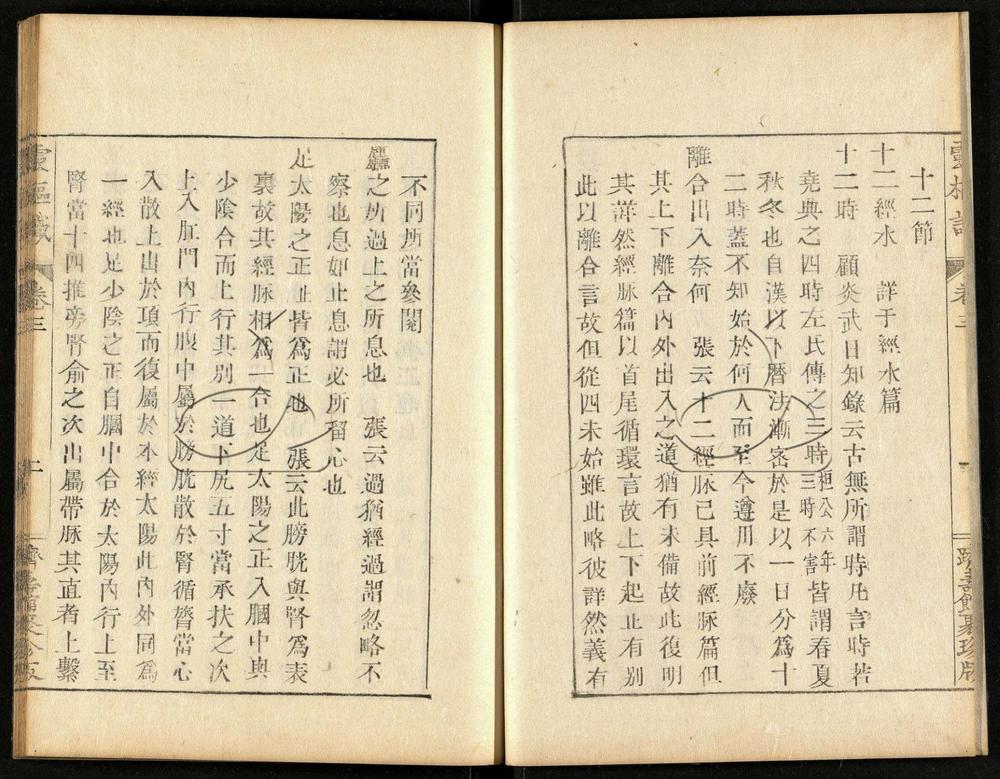 十二節
十二經水　詳于經水篇
十二時　顧炎武日知錄云古無所謂時凡言時若
堯典之四時左氏傳之三時桓公六年三時不害皆謂春夏
秋冬也自漢以下曆法漸密於是以一日分爲十
二時蓋不知始於何人而至今遵用不廢
離合出入奈何　張云十二經脈已具前經脈篇但
其上下離合內外出入之道猶有未備故此復明
其詳然經脈篇以首尾循環言故上下起止有別
此以離合言故但從四末始雖此略彼詳然義有
不同所當參閱
之所過上之所息也　張云過猶經過謂忽略不
察也息如止息謂必所留心也
足太陽之正止皆爲正也　張云此膀胱與腎爲表
裏故其經脈相爲一合也足太陽之正入膕中與
少陰合而上行其別一道下尻五寸當承扶之次
上入肛門內行腹中屬於膀胱散於腎循膂當心
入散上出於項而復屬於本經太陽此內外同爲
一經也足少陰之正自膕中合於太陽內行上至
腎當十四椎旁腎俞之次出屬帶脈其直者上繫
靈樞識
卷三